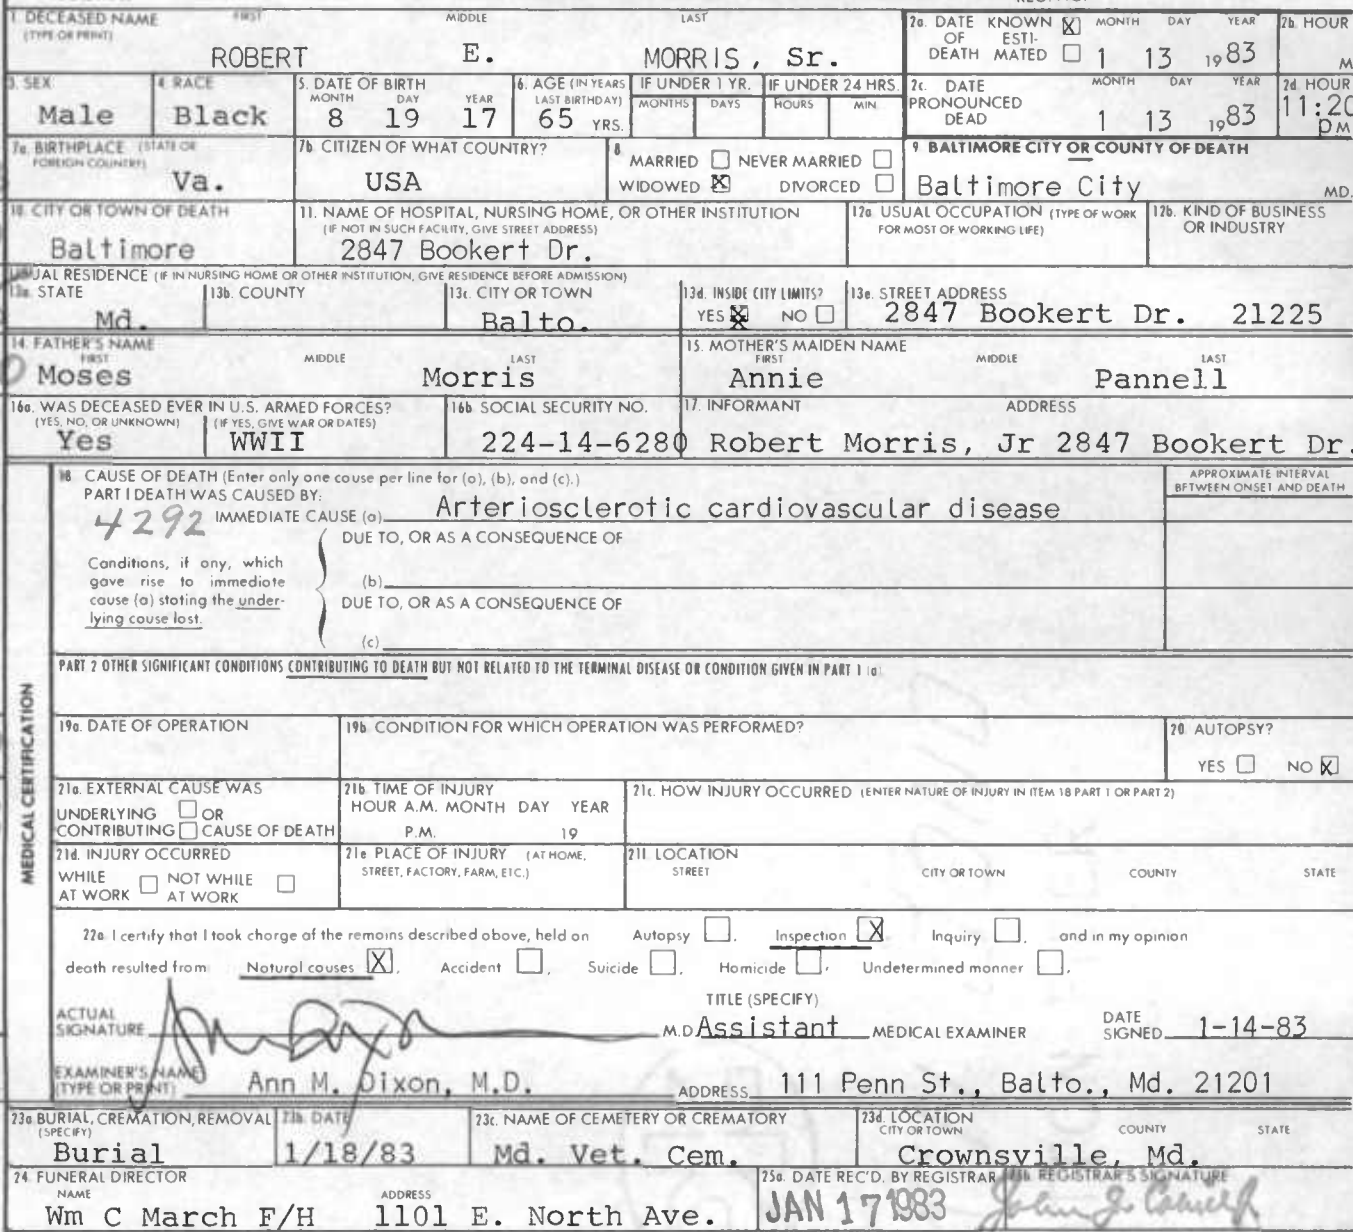 1. DECEASED NAME FIRST MIDDLE LAST
(TYPE OR PRINT)
ROBERT E. MORRIS, Sr.
2a. DATE OF DEATH KNOWN [X] ESTIMATED [ ] MONTH DAY YEAR
1 13 1983
2b. HOUR
M
3. SEX
Male
4. RACE
Black
5. DATE OF BIRTH
MONTH DAY YEAR
8 19 17
6. AGE (IN YEARS LAST BIRTHDAY)
65 YRS.
IF UNDER 1 YR.
MONTHS DAYS
IF UNDER 24 HRS.
HOURS MIN.
2c. DATE PRONOUNCED DEAD
MONTH DAY YEAR
1 13 1983
2d. HOUR
11:20
PM
7a. BIRTHPLACE (STATE OR FOREIGN COUNTRY)
Va.
7b. CITIZEN OF WHAT COUNTRY?
USA
8.
MARRIED [ ] NEVER MARRIED [ ]
WIDOWED [X] DIVORCED [ ]
9. BALTIMORE CITY OR COUNTY OF DEATH
Baltimore City MD.
10. CITY OR TOWN OF DEATH
Baltimore
11. NAME OF HOSPITAL, NURSING HOME, OR OTHER INSTITUTION
(IF NOT IN SUCH FACILITY, GIVE STREET ADDRESS)
2847 Bookert Dr.
12a. USUAL OCCUPATION (TYPE OF WORK FOR MOST OF WORKING LIFE)
12b. KIND OF BUSINESS OR INDUSTRY
USUAL RESIDENCE (IF IN NURSING HOME OR OTHER INSTITUTION, GIVE RESIDENCE BEFORE ADMISSION)
13a. STATE
Md.
13b. COUNTY
13c. CITY OR TOWN
Balto.
13d. INSIDE CITY LIMITS?
YES [X] NO [ ]
13e. STREET ADDRESS
2847 Bookert Dr. 21225
14. FATHER'S NAME
FIRST MIDDLE LAST
Moses Morris
15. MOTHER'S MAIDEN NAME
FIRST MIDDLE LAST
Annie Pannell
16a. WAS DECEASED EVER IN U.S. ARMED FORCES?
(YES, NO, OR UNKNOWN) (IF YES, GIVE WAR OR DATES)
Yes WWII
16b. SOCIAL SECURITY NO.
224-14-6280
17. INFORMANT ADDRESS
Robert Morris, Jr 2847 Bookert Dr.
MEDICAL CERTIFICATION
18 CAUSE OF DEATH (Enter only one cause per line for (a), (b), and (c).)
APPROXIMATE INTERVAL BETWEEN ONSET AND DEATH
PART I DEATH WAS CAUSED BY:
4292 IMMEDIATE CAUSE (a) Arteriosclerotic cardiovascular disease
DUE TO, OR AS A CONSEQUENCE OF
Conditions, if any, which gave rise to immediate cause (a) stating the underlying cause last.
(b)
DUE TO, OR AS A CONSEQUENCE OF
(c)
PART 2 OTHER SIGNIFICANT CONDITIONS CONTRIBUTING TO DEATH BUT NOT RELATED TO THE TERMINAL DISEASE OR CONDITION GIVEN IN PART 1 (a)
19a. DATE OF OPERATION
19b. CONDITION FOR WHICH OPERATION WAS PERFORMED?
20. AUTOPSY?
YES [ ] NO [X]
21a. EXTERNAL CAUSE WAS
UNDERLYING [ ] OR
CONTRIBUTING [ ] CAUSE OF DEATH
21b. TIME OF INJURY
HOUR A.M. MONTH DAY YEAR
P.M. 19
21c. HOW INJURY OCCURRED (ENTER NATURE OF INJURY IN ITEM 18 PART 1 OR PART 2)
21d. INJURY OCCURRED
WHILE AT WORK [ ] NOT WHILE AT WORK [ ]
21e. PLACE OF INJURY (AT HOME, STREET, FACTORY, FARM, ETC.)
21f. LOCATION
STREET CITY OR TOWN COUNTY STATE
22a. I certify that I took charge of the remains described above, held on Autopsy [ ], Inspection [X], Inquiry [ ], and in my opinion
death resulted from Natural causes [X], Accident [ ], Suicide [ ], Homicide [ ], Undetermined manner [ ],
ACTUAL SIGNATURE M.D.
TITLE (SPECIFY)
Assistant MEDICAL EXAMINER
DATE SIGNED 1-14-83
EXAMINER'S NAME (TYPE OR PRINT) Ann M. Dixon, M.D.
ADDRESS 111 Penn St., Balto., Md. 21201
23a. BURIAL, CREMATION, REMOVAL (SPECIFY)
Burial
23b. DATE
1/18/83
23c. NAME OF CEMETERY OR CREMATORY
Md. Vet. Cem.
23d. LOCATION
CITY OR TOWN COUNTY STATE
Crownsville, Md.
24. FUNERAL DIRECTOR
NAME ADDRESS
Wm C March F/H 1101 E. North Ave.
25a. DATE REC'D. BY REGISTRAR
JAN 17 1983
25b. REGISTRAR'S SIGNATURE